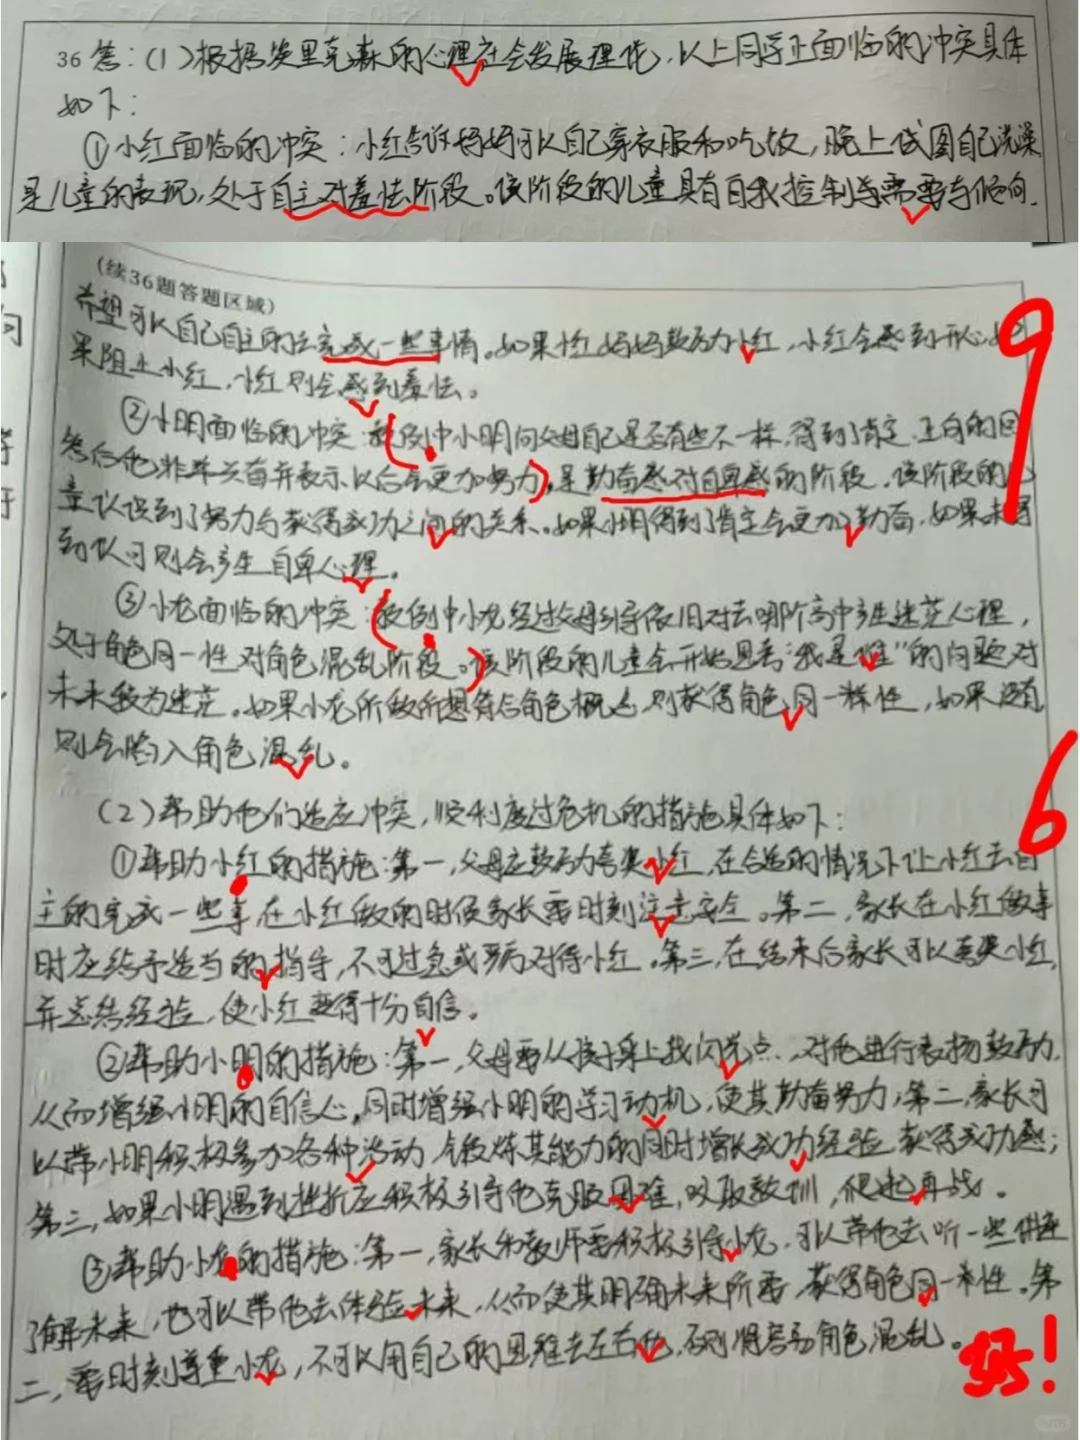 36 答：(1)根据埃里克森的心理社会发展理论，以上同学正面临的冲突具体
如下：
①小红面临的冲突：小红告诉妈妈可以自己穿衣服和吃饭，晚上试图自己洗澡
是儿童的表现，处于自主对羞怯阶段。该阶段的儿童具有自我控制与需要与倾向.
(续36题答题区域)
希望可以自己自主的去完成一些事情。如果小红妈妈鼓励小红，小红会感到开心，如
果阻止小红，小红则会感到羞怯。
②小明面临的冲突：案例中小明问父母自己是否有些不一样，得到了肯定、正向的回
答后他非常兴奋并表示以后会更加努力，是勤奋感对自卑感的阶段。该阶段的儿
童认识到了努力与获得成功之间的关系。如果小明得到了肯定会更加勤奋，如果未得
到认可则会产生自卑心理。
③小龙面临的冲突：案例中小龙经过父母引导依旧对去哪个高中产生迷茫心理，
处于角色同一性对角色混乱阶段。该阶段的儿童会开始思考“我是谁”的问题对
未来较为迷茫。如果小龙所做所想符合角色概念，则获得角色同一性，如果没有
则会陷入角色混乱。
(2)帮助他们适应冲突，顺利度过危机的措施具体如下：
①帮助小红的措施：第一，父母应鼓励夸奖小红，在合适的情况下让小红去自
主的完成一些事，在小红做的时候家长需时刻注意安全。第二，家长在小红做事
时应给予适当的指导，不可过急或严厉对待小红。第三，在结束后家长可以夸奖小红，
并总结经验，使小红变得十分自信。
②帮助小明的措施：第一，父母要从孩子身上找闪光点，对他进行表扬鼓励，
从而增强小明的自信心，同时增强小明的学习动机，使其勤奋努力；第二，家长可
以带小明积极参加各种活动，锻炼其能力的同时增长成功经验，获得成功感；
第三，如果小明遇到挫折应积极引导他克服困难，吸取教训，使他再战。
③帮助小龙的措施：第一，家长和教师要积极引导小龙，可以带他去听一些讲座
了解未来，也可以带他去体验未来，从而使其明确未来所需，获得角色同一性。第
二，需时刻尊重小龙，不可以用自己的思维去左右他，否则将容易角色混乱。
9
6
好！